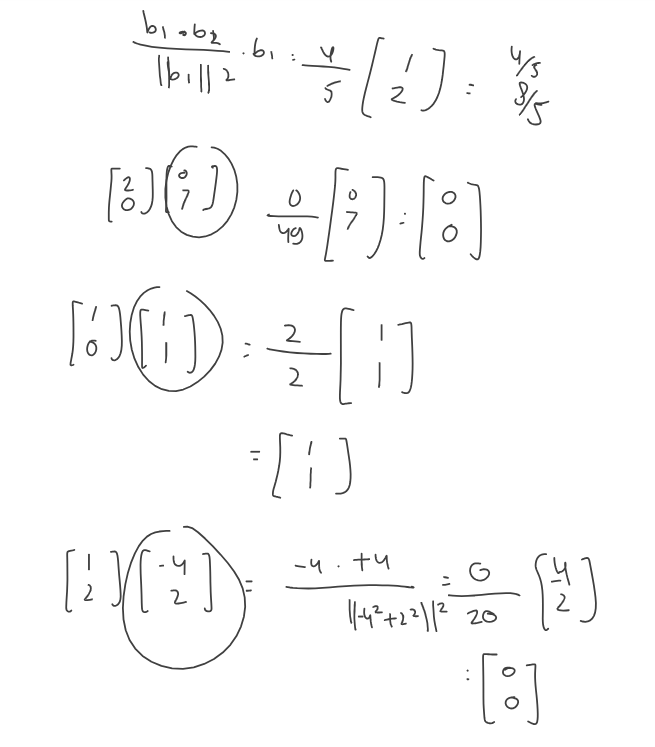 b₁ • b₂ / ||b₁||² · b₁ : 4/5 [1 2] = 4/5 8/5
[2 0] [0 7] 0/49 [0 7] : [0 0]
[1 0] [1 1] = 2/2 [1 1]
= [1 1]
[1 2] [-4 2] = -4 · +4 / ||-4²+2²||² = 0/20 [-4 2]
: [0 0]